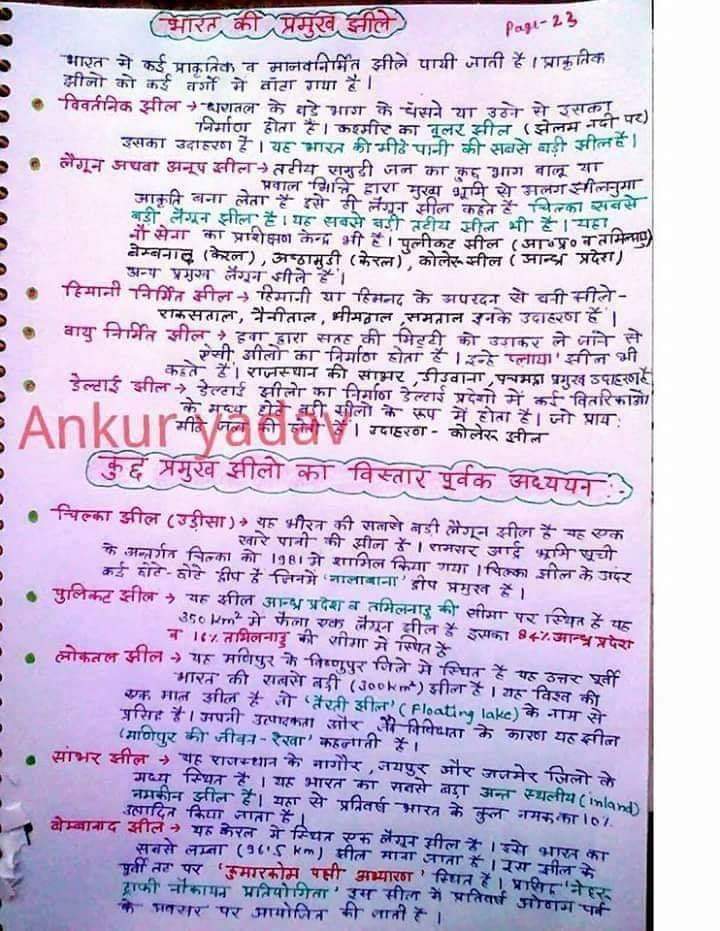 भारत की प्रमुख झीले
Page-23
भारत में कई प्राकृतिक व मानवनिर्मित झीले पायी जाती है । प्राकृतिक
झीलो को कई वर्गो में बाँटा गया है ।
विवर्तनिक झील → धरातल के बडे भाग के धँसने या उठने से इसका
निर्माण होता है । कश्मीर का वूलर झील (झेलम नदी पर)
इसका उदाहरण है । यह भारत की मीठे पानी की सबसे बडी झील है ।
लैगून अथवा अनूप झील → तटीय समुद्री जल का कुछ भाग बालू या
प्रवाल भित्ति द्वारा मुख्य भूमि से अलग झीलनुमा
आकृति बना लेता है इसे ही लैगून झील कहते है चिल्का सबसे
बडी लैगून झील है । यह सबसे बडी तटीय झील भी है । यहा
नौ सेना का प्राशिक्षण केन्द्र भी है । पुलीकट झील (आ०प्र० व तमिलनाडु)
वेम्बनाद (केरल), अष्ठामुडी (केरल), कोलेरु झील (आन्ध्र प्रदेश)
अन्य प्रमुख लैगून झीले है ।
हिमानी निर्मित झील → हिमानी या हिमनद के अपरदन से बनी झीले -
राकसताल, नैनीताल, भीमताल, समताल इनके उदाहरण है ।
वायु निर्मित झील → हवा द्वारा सतह की मिट्टी को उडाकर ले जाने से
ऐसी झीलो का निर्माण होता है । इन्हे 'प्लाया' झील भी
कहते है । राजस्थान की सांभर, डीडवाना, पचभद्रा प्रमुख उदाहरण है
डेल्टाई झील → डेल्टाई झीलो का निर्माण डेल्टाई प्रदेशो में कई वितरिकाओ
के मध्य छोटे बडी झीलो के रूप में होता है । जो प्राय:
मीठे जल की होती है । उदाहरण - कोलेरु झील
Ankur yadav
कुछ प्रमुख झीलो का विस्तार पूर्वक अध्ययन :-
चिल्का झील (उडीसा) → यह भारत की सबसे बडी लैगून झील है यह एक
खारे पानी की झील है । रामसर आर्द्र भूमि सूची
के अन्तर्गत चिल्का को 1981 में शामिल किया गया । चिल्का झील के अंदर
कई छोटे-छोटे द्वीप है जिनमें 'नालाबाना' द्वीप प्रमुख है ।
पुलिकट झील → यह झील आन्ध्र प्रदेश व तमिलनाडु की सीमा पर स्थित है यह
350 km² में फैला एक लैगून झील है इसका 84% आन्ध्र प्रदेश
व 16% तमिलनाडु की सीमा में स्थित है
लोकतल झील → यह मणिपुर के विष्णुपुर जिले में स्थित है यह उत्तर पूर्वी
भारत की सबसे बडी (300km²) झील है । यह विश्व की
एक मात्र झील है जो 'तैरती झील' (Floating lake) के नाम से
प्रसिद्द है । अपनी उत्पादकता और जैव विविधता के कारण यह झील
'मणिपुर की जीवन-रेखा' कहलाती है ।
सांभर झील → यह राजस्थान के नागौर, जयपुर और अजमेर जिलो के
मध्य स्थित है । यह भारत का सबसे बडा अन्त स्थलीय (inland)
नमकीन झील है । यहा से प्रतिवर्ष भारत के कुल नमक का 10%
उत्पादित किया जाता है ।
वेम्बानाद झील → यह केरल में स्थित एक लैगून झील है । इसे भारत का
सबसे लम्बा (96.5 km) झील माना जाता है । इस झील के
पूर्वी तट पर 'कुमारकोम पक्षी अभ्यारण' स्थित है । प्रासिद्द 'नेहरु
ट्राफी नौकायन प्रतियोगिता' इस झील में प्रतिवर्ष ओणम पर्व
के अवसर पर आयोजित की जाती है ।